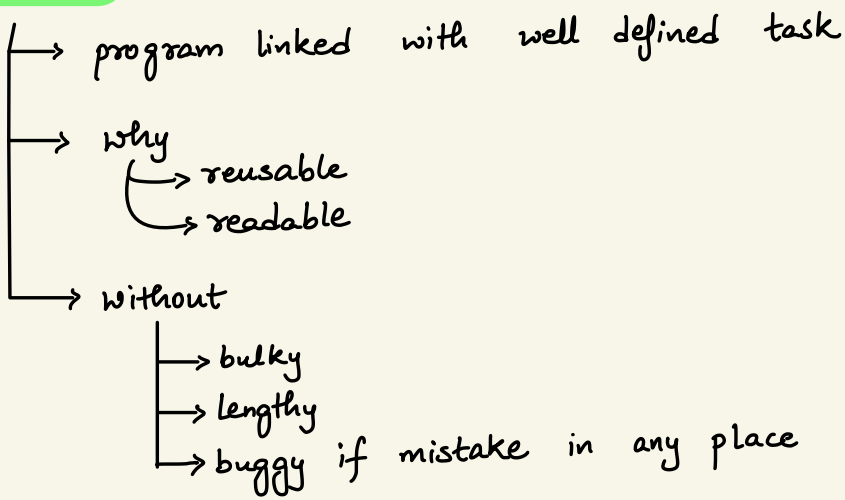 program linked with well defined task
why
reusable
readable
without
bulky
lengthy
buggy if mistake in any place